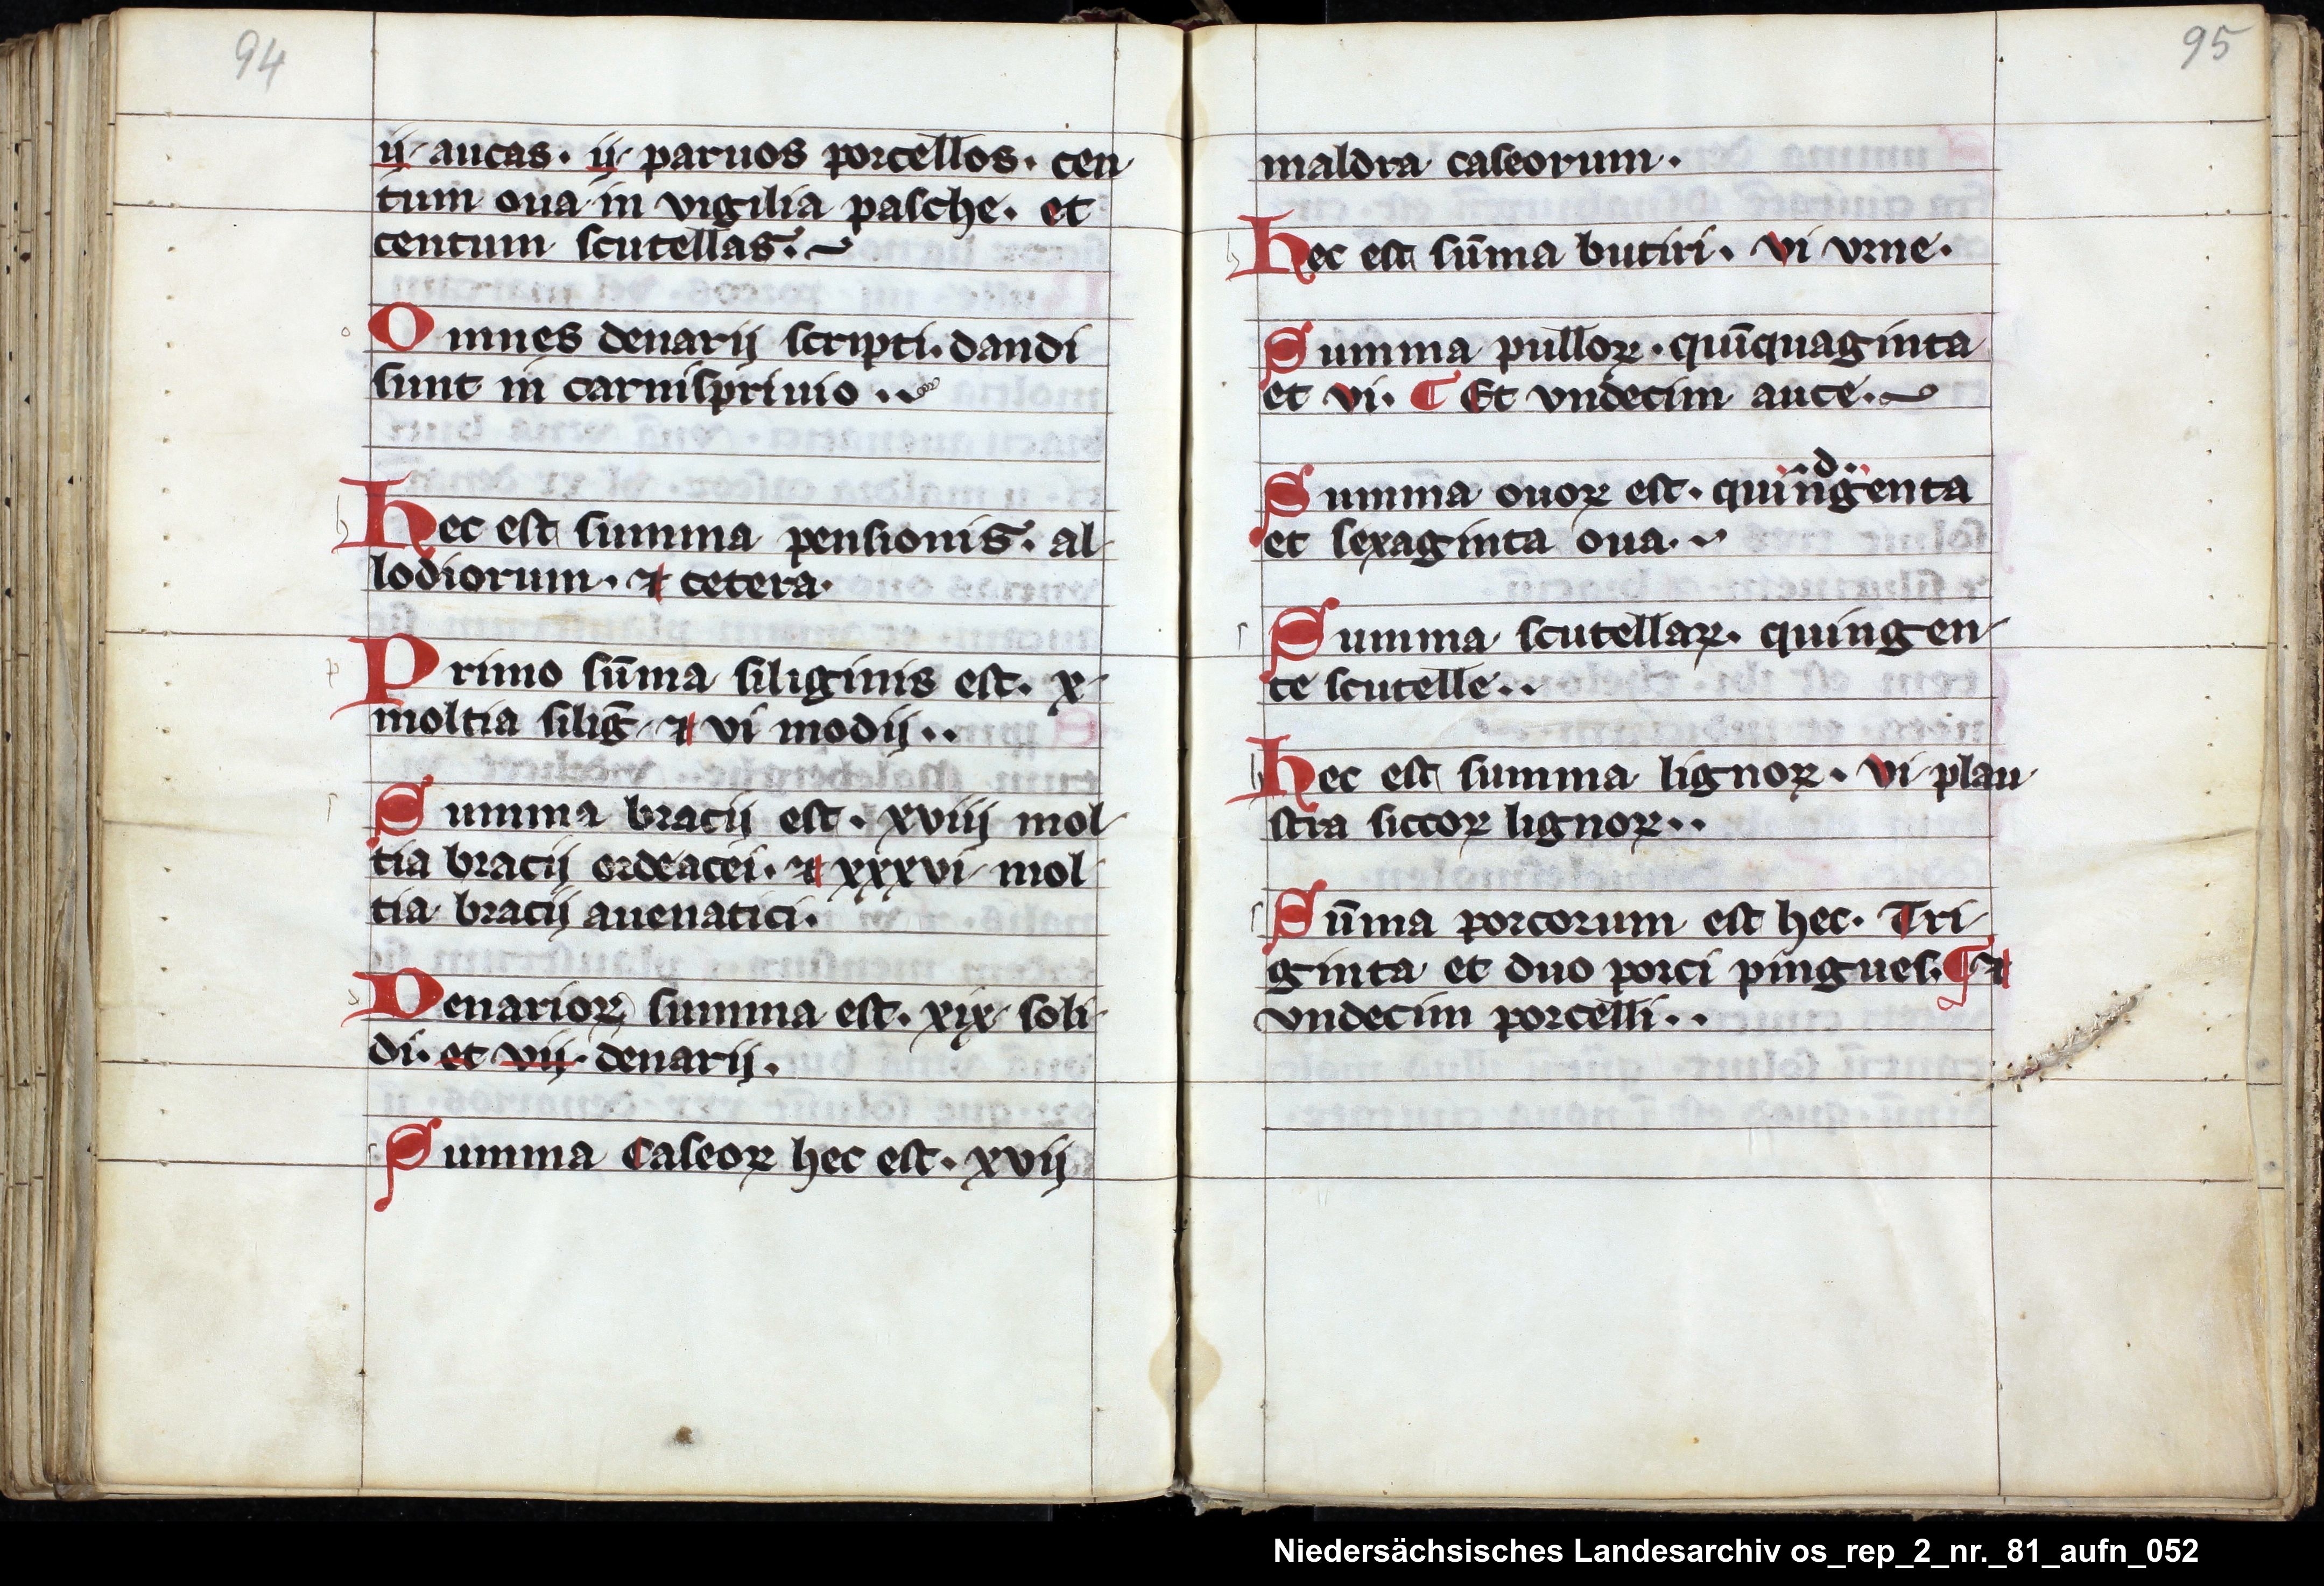 94
ij aucas. ij paruos porcellos. cen
tum oua in vigilia pasche. et
centum scutellas.
Omnes denarij scripti. dandi
sunt in carnispriuio..
Hec est summa pensionis. al
lodiorum. ⁊ cetera.
Primo sūma siliginis est. x
moltia siliḡ ⁊ vi modij..
Summa bracij est. xviij mol
tia bracij ordeacei. ⁊ xxxvi mol
tia bracij auenatici.
Denarioꝝ summa est. xix soli
di. et vij. denarij.
Summa caseoꝝ hec est. xvij
95
maldra caseorum.
Hec est sūma butiri. vi vrne.
Summa pulloꝝ. quīquaginta
et vi. ¶ Et vndecim auce.
d
Summa ouoꝝ est. quingenta
et sexaginta oua.
Summa scutellaꝝ. quingen
te scutelle..
Hec est summa lignoꝝ. vi plau
stra siccoꝝ lignoꝝ..
Sūma porcorum est hec. Tri
ginta et duo porci pingues. ¶ ⁊
vndecim porcelli..
Niedersächsisches Landesarchiv os_rep_2_nr._81_aufn_052